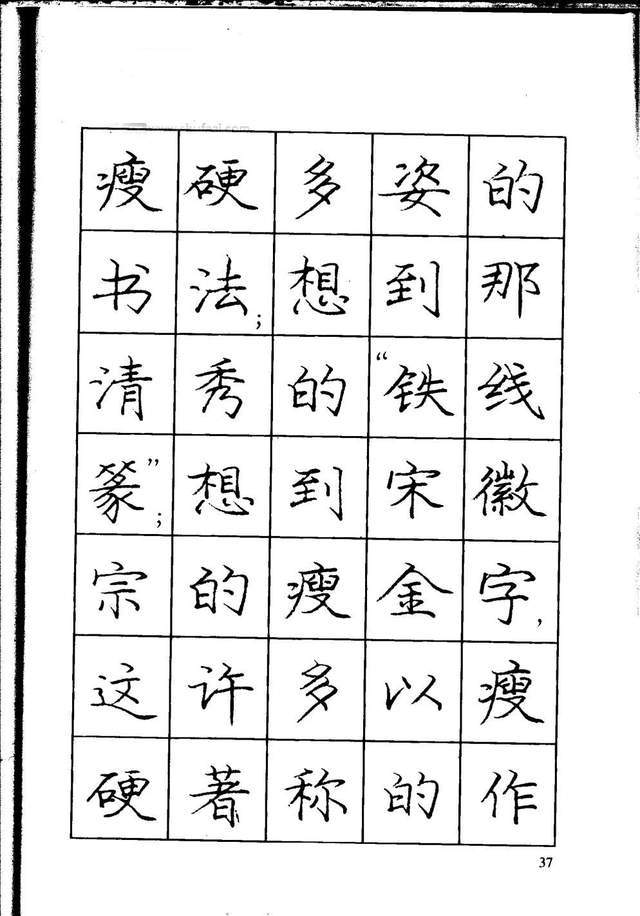 瘦硬多姿的
书法;想到那
清秀的“铁线
篆”;想到宋徽
宗的瘦金字,
这许多以瘦
硬著称的作
37